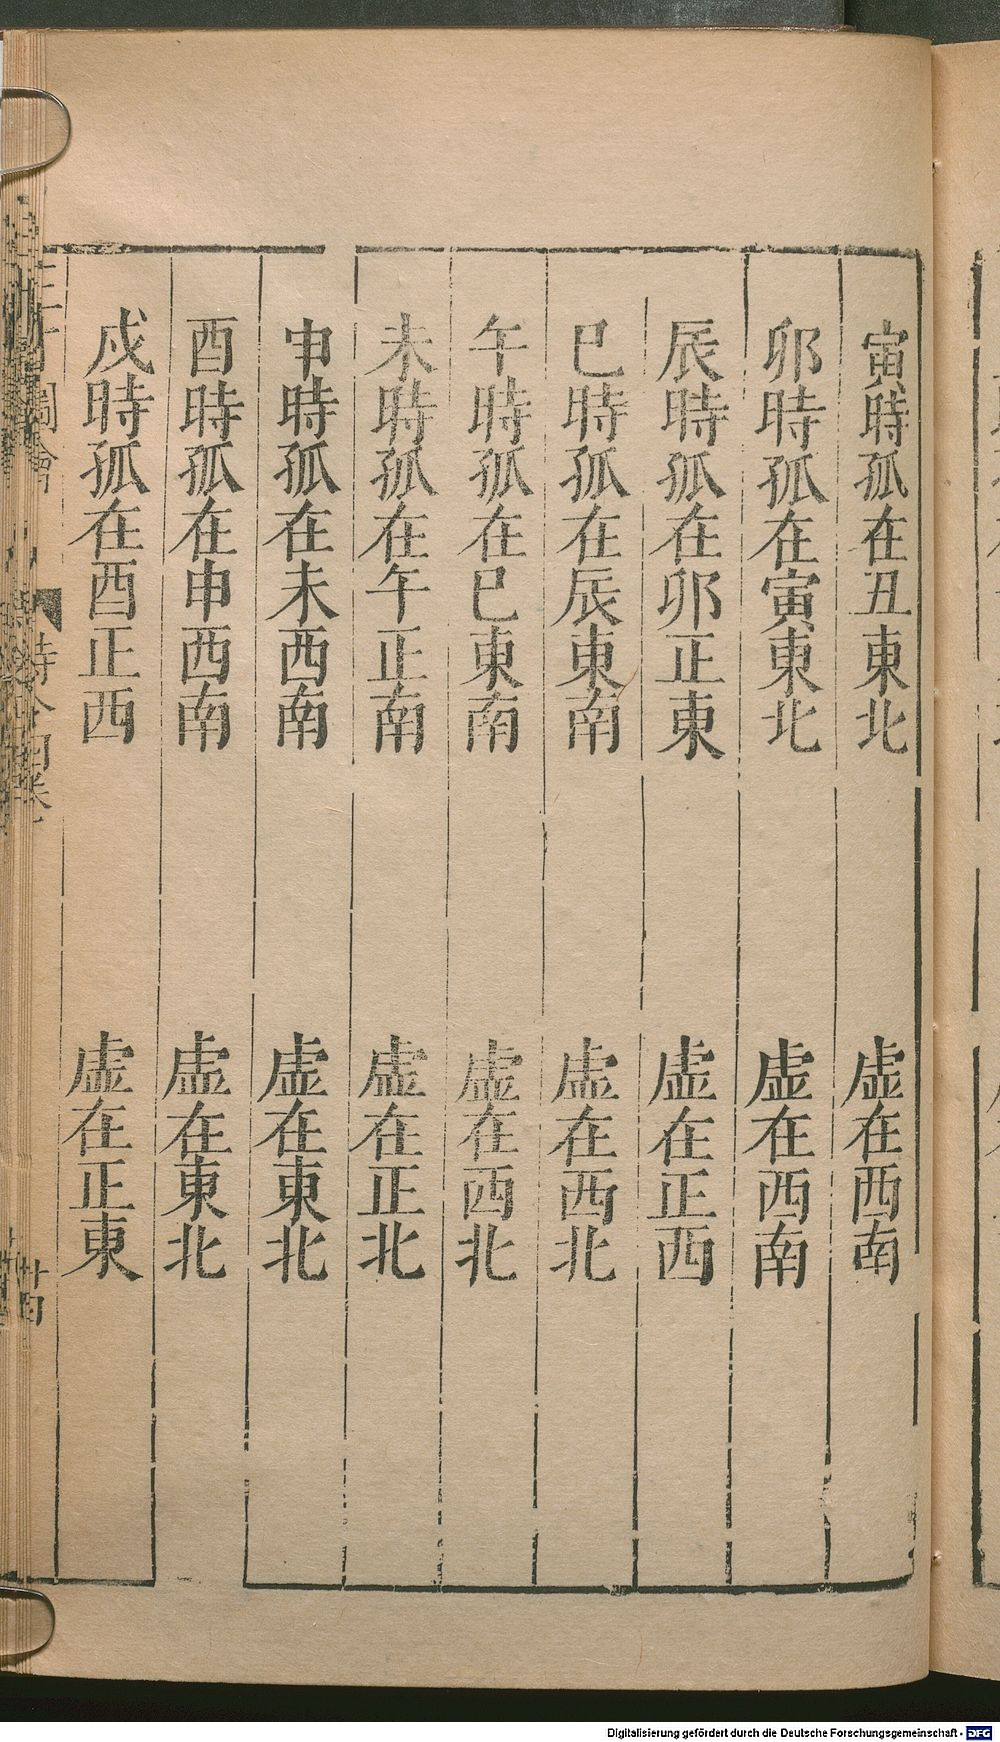 寅時孤在丑東北　虛在西南
卯時孤在寅東北　虛在西南
辰時孤在卯正東　虛在正西
巳時孤在辰東南　虛在西北
午時孤在巳東南　虛在西北
未時孤在午正南　虛在正北
申時孤在未西南　虛在東北
酉時孤在申西南　虛在東北
戍時孤在酉正西　虛在正東
圖會　時令四卷
Digitalisierung gefördert durch die Deutsche Forschungsgemeinschaft - DFG